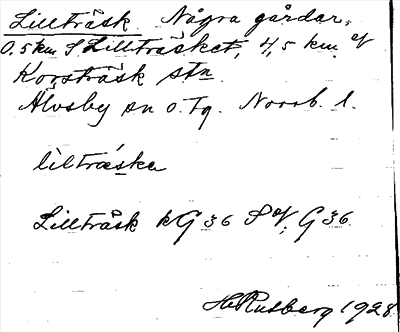 Lillträsk. Några gårdar,
0.5 km S Lillträsket, 4,5 km. of
Korsträsk stn.
Älvsby sn o. Tg. Norrb. l.
lilträska
Lillträsk kG 36 S of, G 36.
H. Rutberg 1928